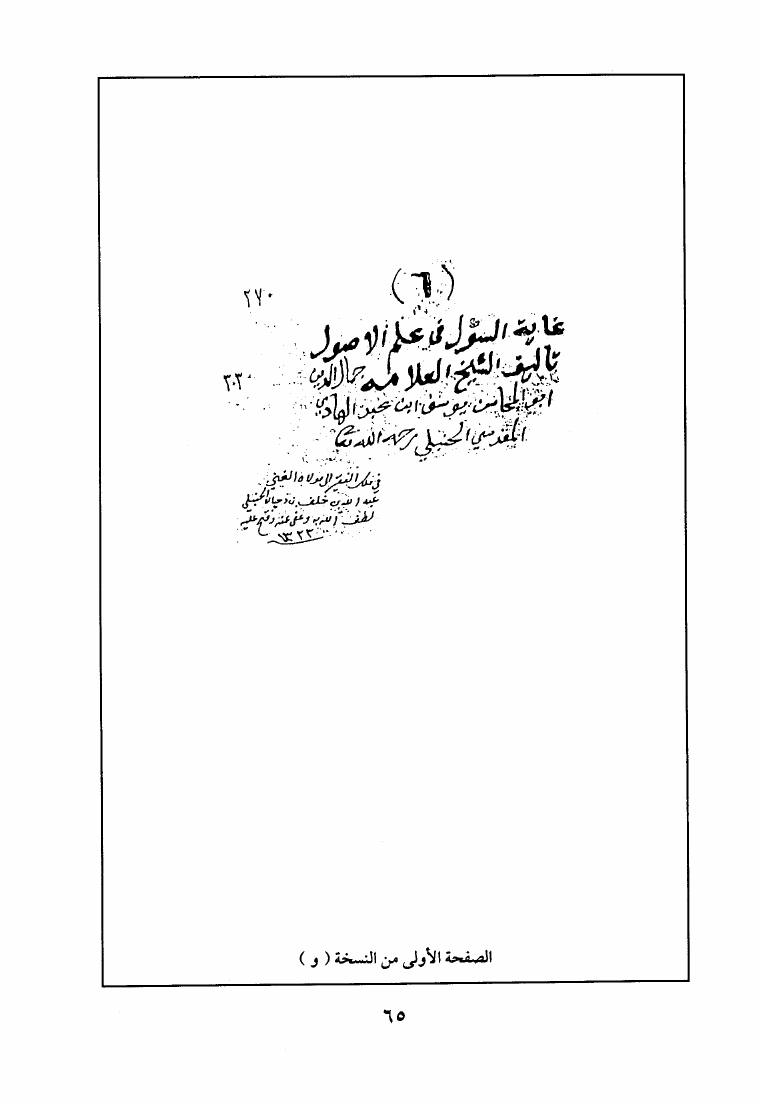 (٦)
٢٧٠
غاية السؤل في علم الاصول
تاليف الشيخ العلامه جمال الدين
٣٠٣٠
ابو المحاسن يوسف ابن عبد الهادي
المقدسي الحنبلي رحمه الله تعالى
في ملك الفقير الى مولاه الغني
عبد الله بن خلف بن دحيان الحنبلي
لطف الله به وعفى عنه وفتح عليه
١٣٢٣
الصفحة الأولى من النسخة ( و )
٦٥